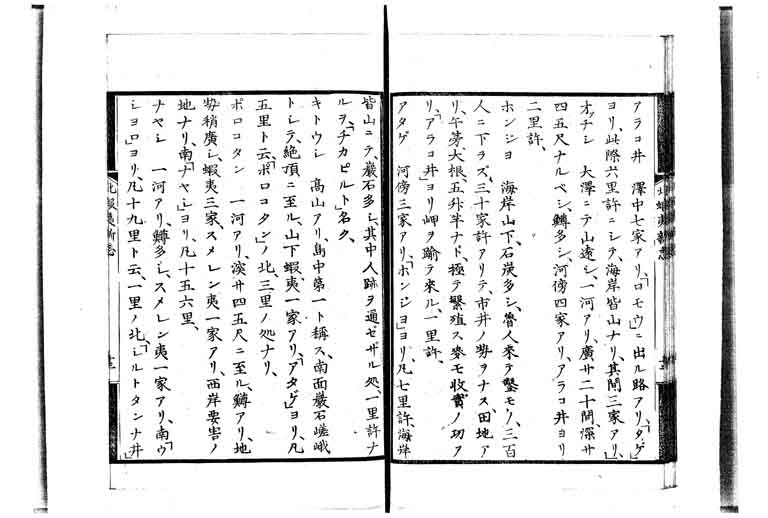 アラコ井　澤中七家アリ、「ロモウ」ニ出ル路アリ、「タゲ」
ヨリ、此際六里許ニシテ、海岸皆山ナリ、其間三家アリ、
オッチシ　大澤ニテ山遠シ、一河アリ廣サ二十間、深サ
四五尺ナルベシ、鱒多シ、河傍四家アリ、アラコ井ヨリ
二里許、
ホンジヨ　海岸山下、石炭多シ、魯人来テ鑿モノ、三百
人ニ下ラズ、三十家許アリテ、市井ノ勢ヲナス、田地ア
リ、午蒡、大根、五升芋ナド、極テ繁殖ス、麥モ收實ノ功ア
リ、「アラコ井」ヨリ岬ヲ踰テ來ル、一里許、
アタゲ　河傍三家アリ、「ホンジヨ」ヨリ、凡七里許、海岸
皆山ニテ、巖石多シ、其中人跡ヲ通ゼザル処、一里許ナ
ルヲ、「チカピルト」名ク、
キトウシ　高山アリ、島中第一ト稱ス、南面巖石嵯峨
トシテ、絶頂ニ至ル、山下蝦夷一家アリ、「アタゲ」ヨリ、凡
五里ト云、「ポロコタン」ノ北、三里ノ処ナリ、
ポロコタン　一河アリ、深サ四五尺ニ至ル、鱒アリ、地
勢稍廣シ、蝦夷三家、スメレン夷一家アリ、西岸要害ノ
地ナリ、南「ナヤシ」ヨリ、凡十五六里、
ナヤシ　一河アリ、鱒多シ、スメレン夷一家アリ、南「ウ
シヨロ」ヨリ、凡十九里ト云、一里ノ北、「シルトタンナ井」
北蝦夷新志
十三
北蝦夷新志